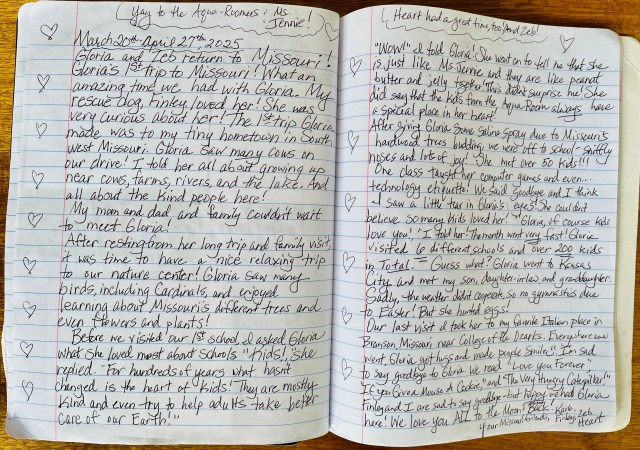 Yay to the Aqua-Roomers & Ms.
Jennie!
March 20th-April 27th, 2025
Gloria and Zeb return to Missouri!
Gloria's 1st trip to Missouri! What an
amazing time we had with Gloria. My
rescue dog, Finley, loved her! She was
very curious about her! The 1st trip Gloria
made was to my tiny hometown in South
west Missouri. Gloria saw many cows on
our drive! I told her all about growing up
near cows, farms, rivers, and the lake. And
all about the kind people here!
My mom and dad, and family couldn't wait
to meet Gloria!
After resting from her long trip and family visit,
it was time to have a nice relaxing trip
to our nature center! Gloria saw many
birds, including Cardinals, and enjoyed
learning about Missouri's different trees and
even flowers and plants!
Before we visited our 1st school I asked Gloria
what she loved most about schools "Kids!", she
replied. "For hundreds of years what hasn't
changed is the heart of kids! They are mostly
kind and even try to help adults take better
care of our Earth!"
Heart had a great time, too! And Zeb!
"Wow!" I told Gloria! She went on to tell me that she
is just like Ms. Jennie and they are like peanut
butter and jelly together! This didn't surprise me! She
did say that the kids from the Aqua Room always have
a special place in her heart!
After giving Gloria some saline spray due to Missouri's
hardwood trees budding, we were off to school - sniffly
noses and lots of joy! She met over 50 kids!!!
One class taught her computer games and even...
technology etiquette! We said goodbye and I think
I saw a little tear in Gloria's eyes! She couldn't
believe so many kids loved her! "Gloria, of course kids
love you!" I told her! The month went very fast! Gloria
visited 6 different schools and over 200 kids
in Total. Guess what? Gloria went to Kansas
City and met my son, daughter-in-law and granddaughter.
Sadly, the weather didn't cooperate, so no gymnastics due
to Easter! But she hunted eggs!
Our last visit I took her to my favorite Italian place in
Branson, Missouri near College of the Ozarks. Everywhere we
went, Gloria got hugs and made people smile! I'm sad
to say goodbye to Gloria. We read "Love you Forever",
"If you Give a Mouse A Cookie," and "The Very Hungry Caterpillar!"
Finley and I are sad to say goodbye - but happy we had Gloria
here! We love you ALL to the Moon & Back!
Your Missouri friends, Finley, Zeb
Heart